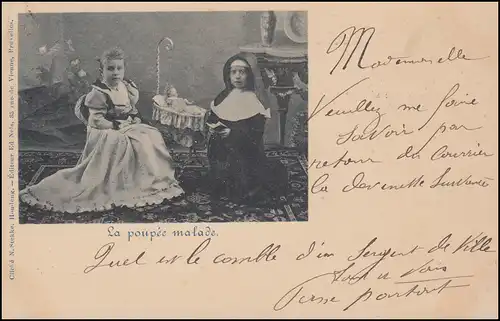 Cliché N. Sonko, Houdeng. — Éditeur Ed. Nels, 25 rue de Vienne, Bruxelles.
La poupée malade.
Mademoiselle
Veuillez me faire
savoir par
retour du courrier
la devinette suivante
Quel est le comble d'un Sergent de Ville